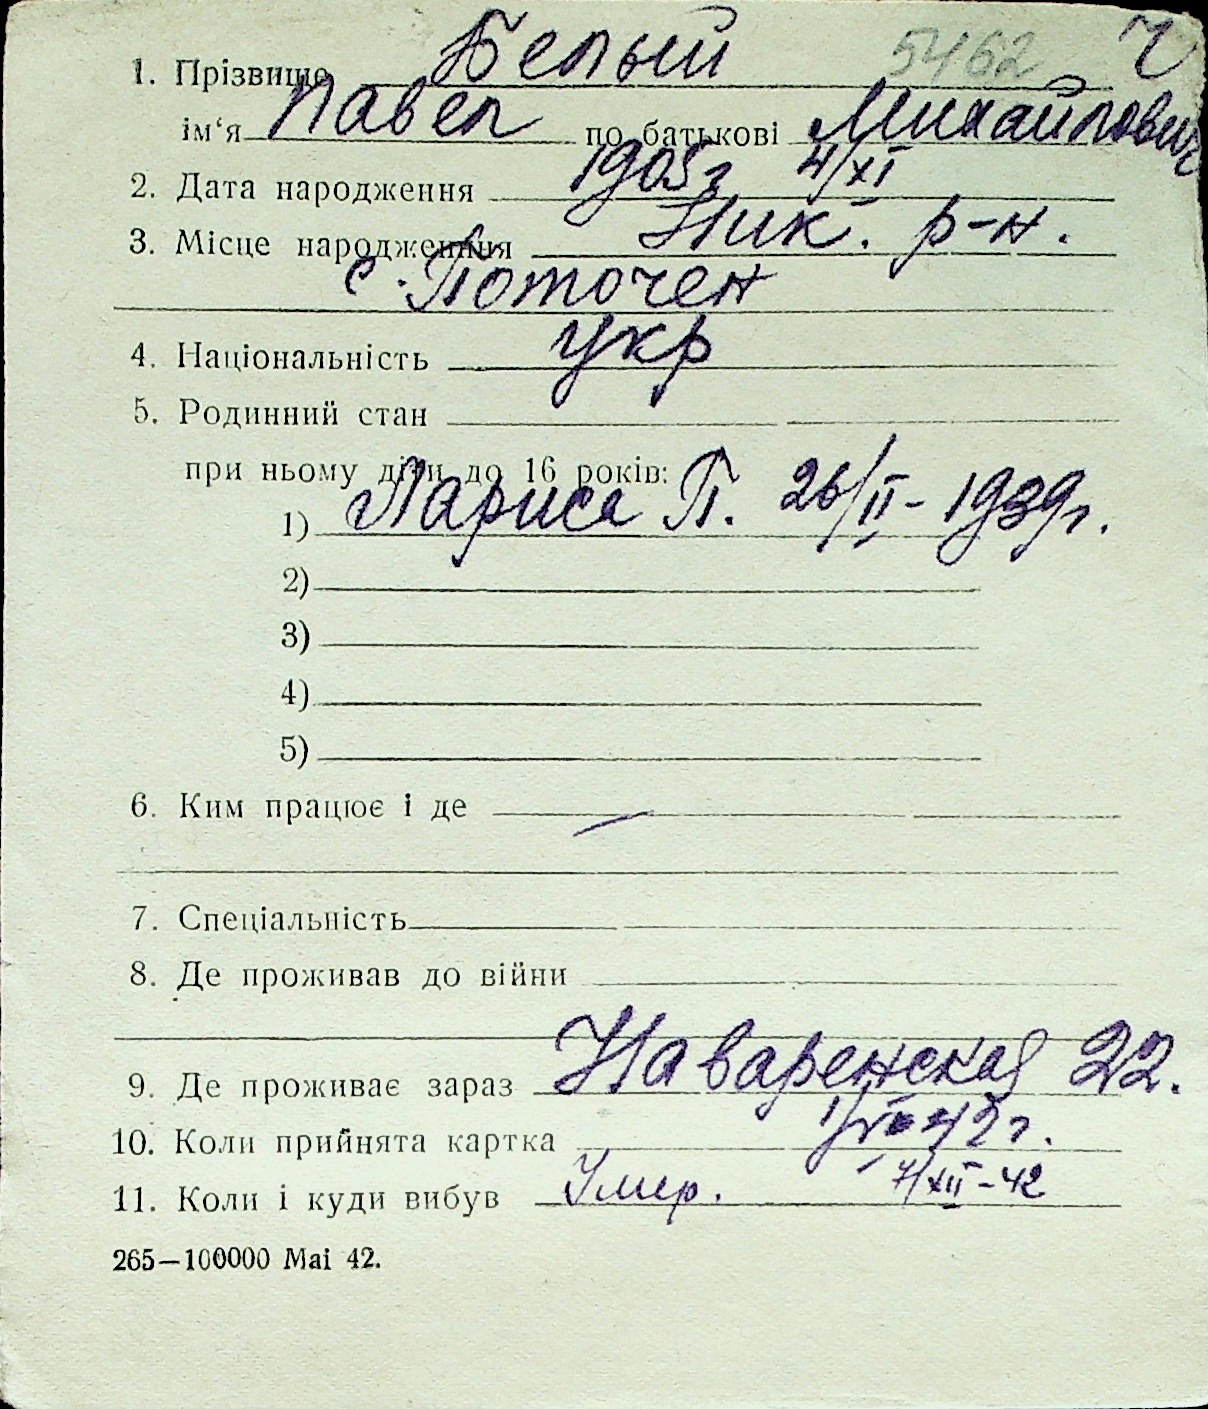 5462 Ч
1. Прізвище Белый
ім‘я Павел по батькові Михайлович
2. Дата народження 1905г 4/XI
3. Місце народження Ник. р-н.
с. Поточен
4. Національність укр
5. Родинний стан
при ньому діти до 16 років:
1) Лариса П. 26/II - 1939г.
2)
3)
4)
5)
6. Ким працює і де —
7. Спеціальність
8. Де проживав до війни
9. Де проживає зараз Наваренская 22.
10. Коли прийнята картка 42г.
11. Коли і куди вибув Умер. 7/XII-42
265—100000 Mai 42.